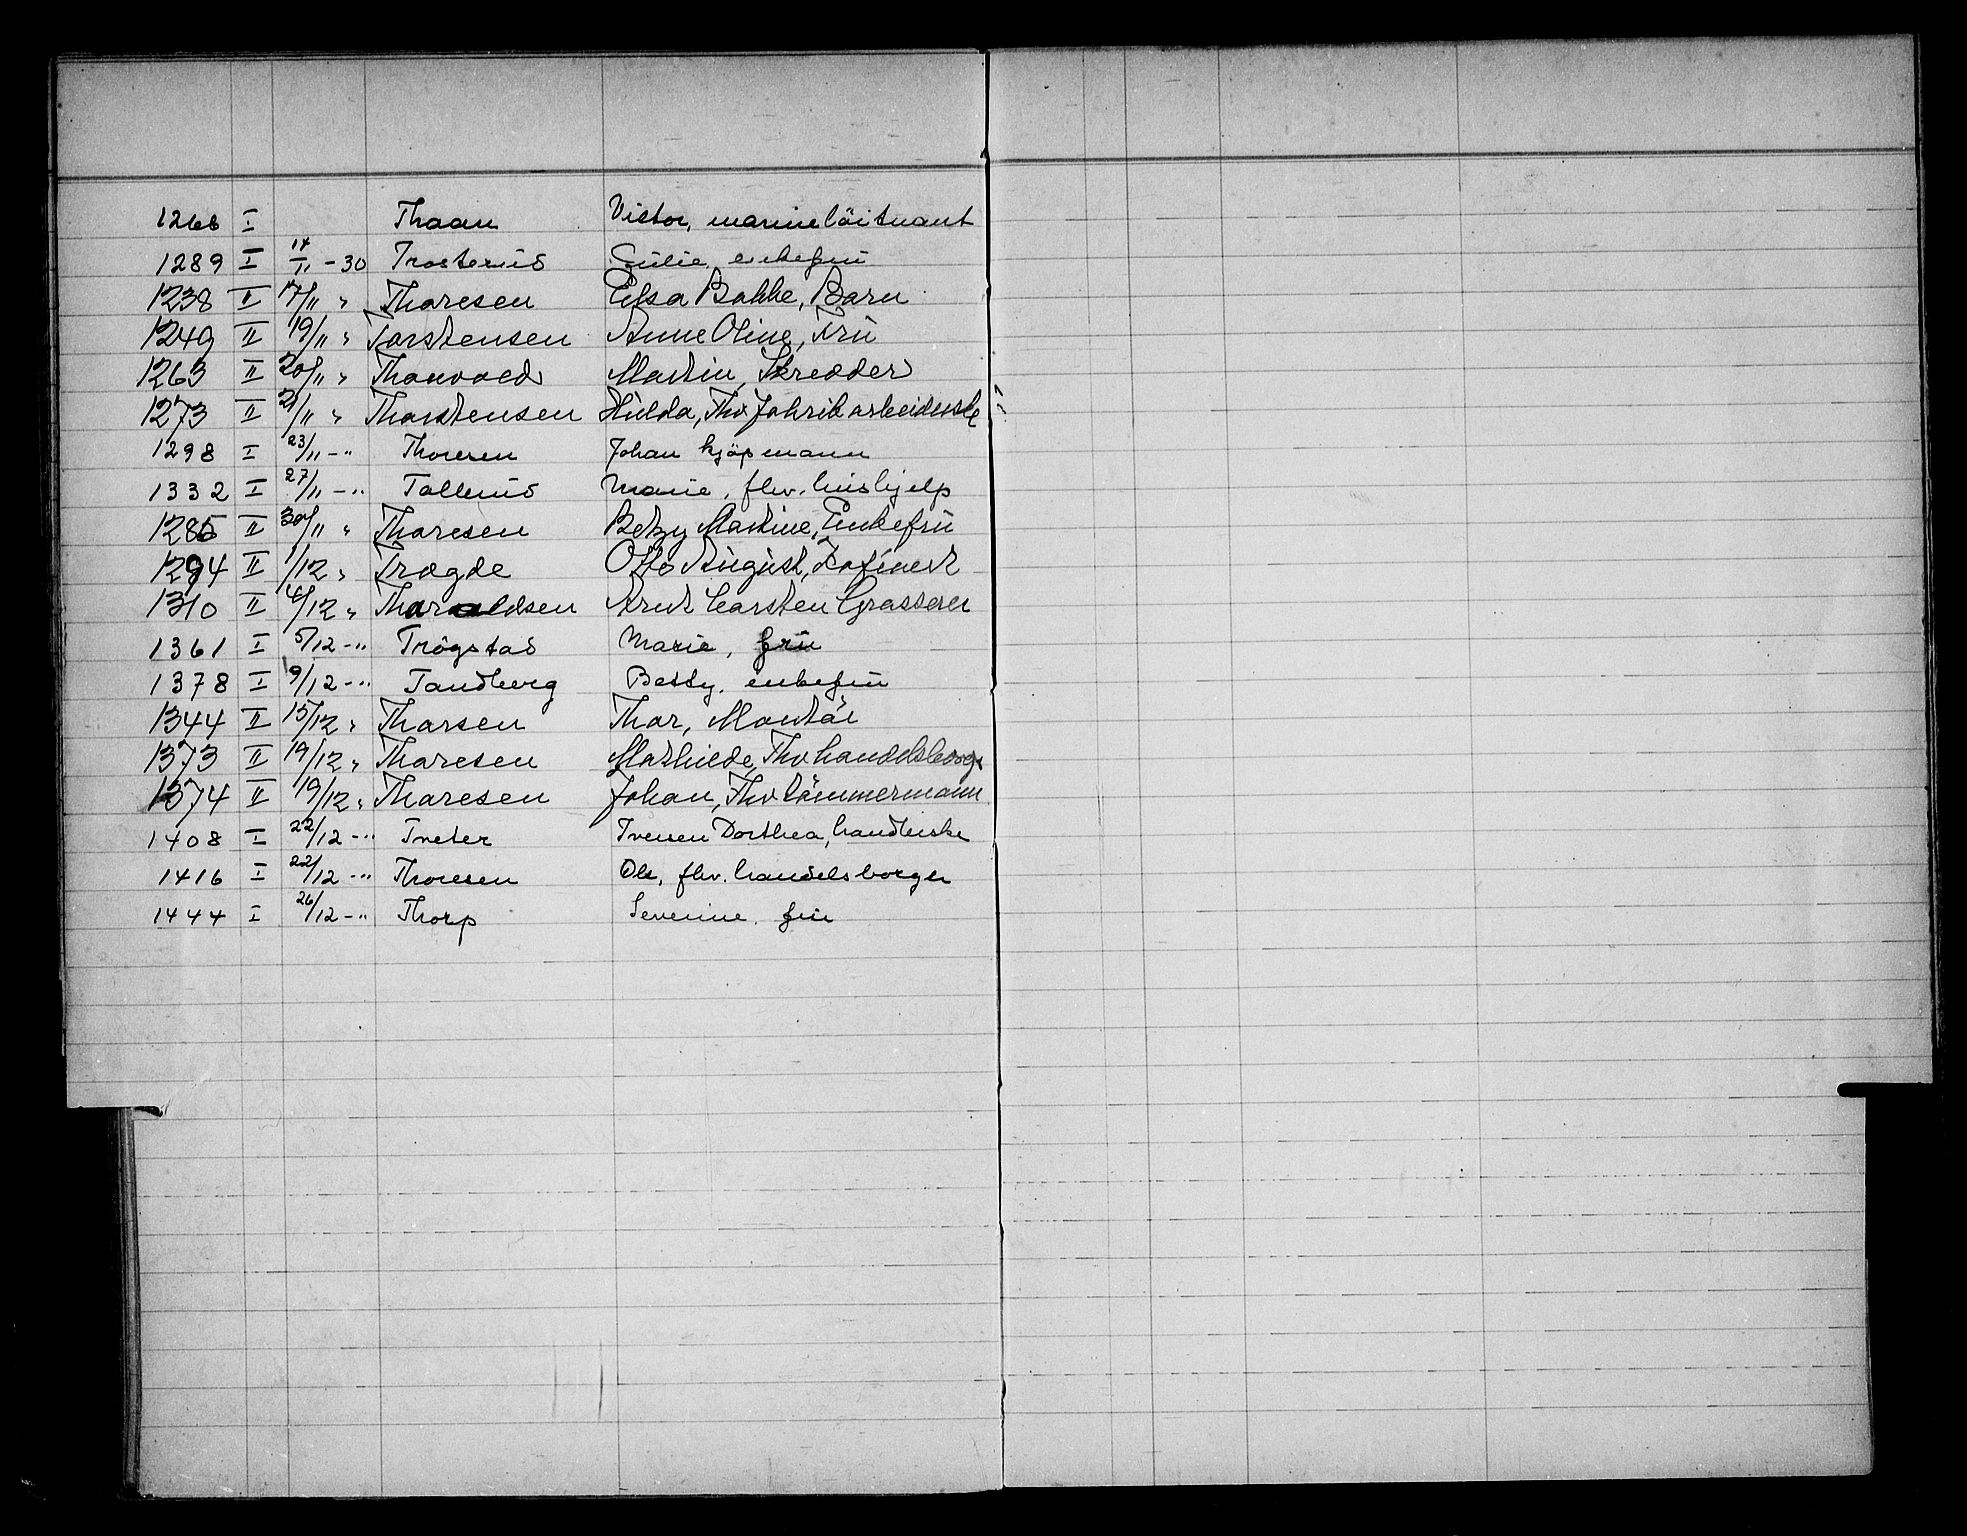 1266 I Thaan Victor, marinelöitnant
1289 I 14/11 - 30 Trosterud Julie enkefrü
1238 II 17/11 " Thoresen Elsa Bakke, Barn
1249 II 19/11 " Torstensen Anne Oline, Frü
1263 II 20/11 " Thorvald Martin, Skredder
1273 II 21/11 " Thorstensen Hulda, Fhv. Fabrikarbeiderske
1298 I 23/11 - " Thoresen Johan kjöpmann
1332 I 27/11 - " Tollerud Marie, fhv. hüshjelp
1285 II 30/11 " Thoresen Betzy Martine, Enkefrü
1294 II 1/12 " Trægde Otto August,
1310 II 4/12 " Tharaldsen Arnt Carsten Grosserer
1361 I 5/12 - " Trögstad Marie, frü
1378 I 9/12 - " Tandberg Betty, enkefrü
1344 II 15/12 " Thorsen Thor, Montör
1373 II 19/12 " Thoresen Mathilde, Fhv handelsborg.
1374 II 19/12 " Thoresen Johan, Fhv tömmermann
1408 I 22/12 - " Tveter Iversen Dorthea, handlerske
1416 I 22/12 - " Thoresen Ole, fhv. handelsborger
1444 I 26/12 - " Thorp Severine, frü